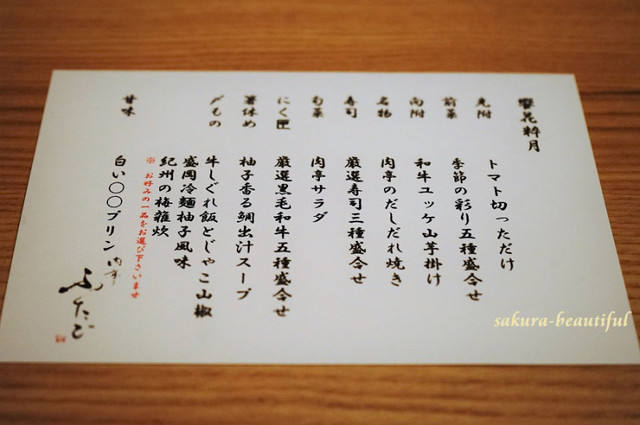 花粋月
先附
トマト切っただけ
前菜
季節の彩り五種盛合せ
向附
和牛ユッケ山芋掛け
名物
肉亭のだしだれ焼き
寿司
厳選寿司三種盛合せ
旬菜
肉亭サラダ
にく匠
厳選黒毛和牛五種盛合せ
箸休め
柚子香る鯛出汁スープ
〆もの
牛しぐれ飯とじゃこ山椒
盛岡冷麺柚子風味
紀州の梅雑炊
※ お好みの一品をお選び下さいませ
甘味
白い○○プリン
肉亭
ふたご
sakura-beautiful